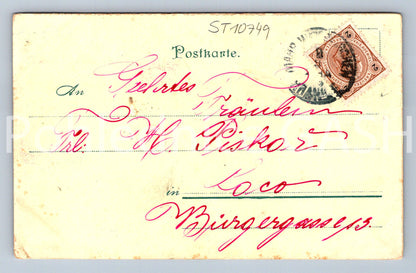 ST10749
Postkarte.
An Geehrtes
Fräulein
Frl. H. Piskar
in Loco
Bürgergasse 13.